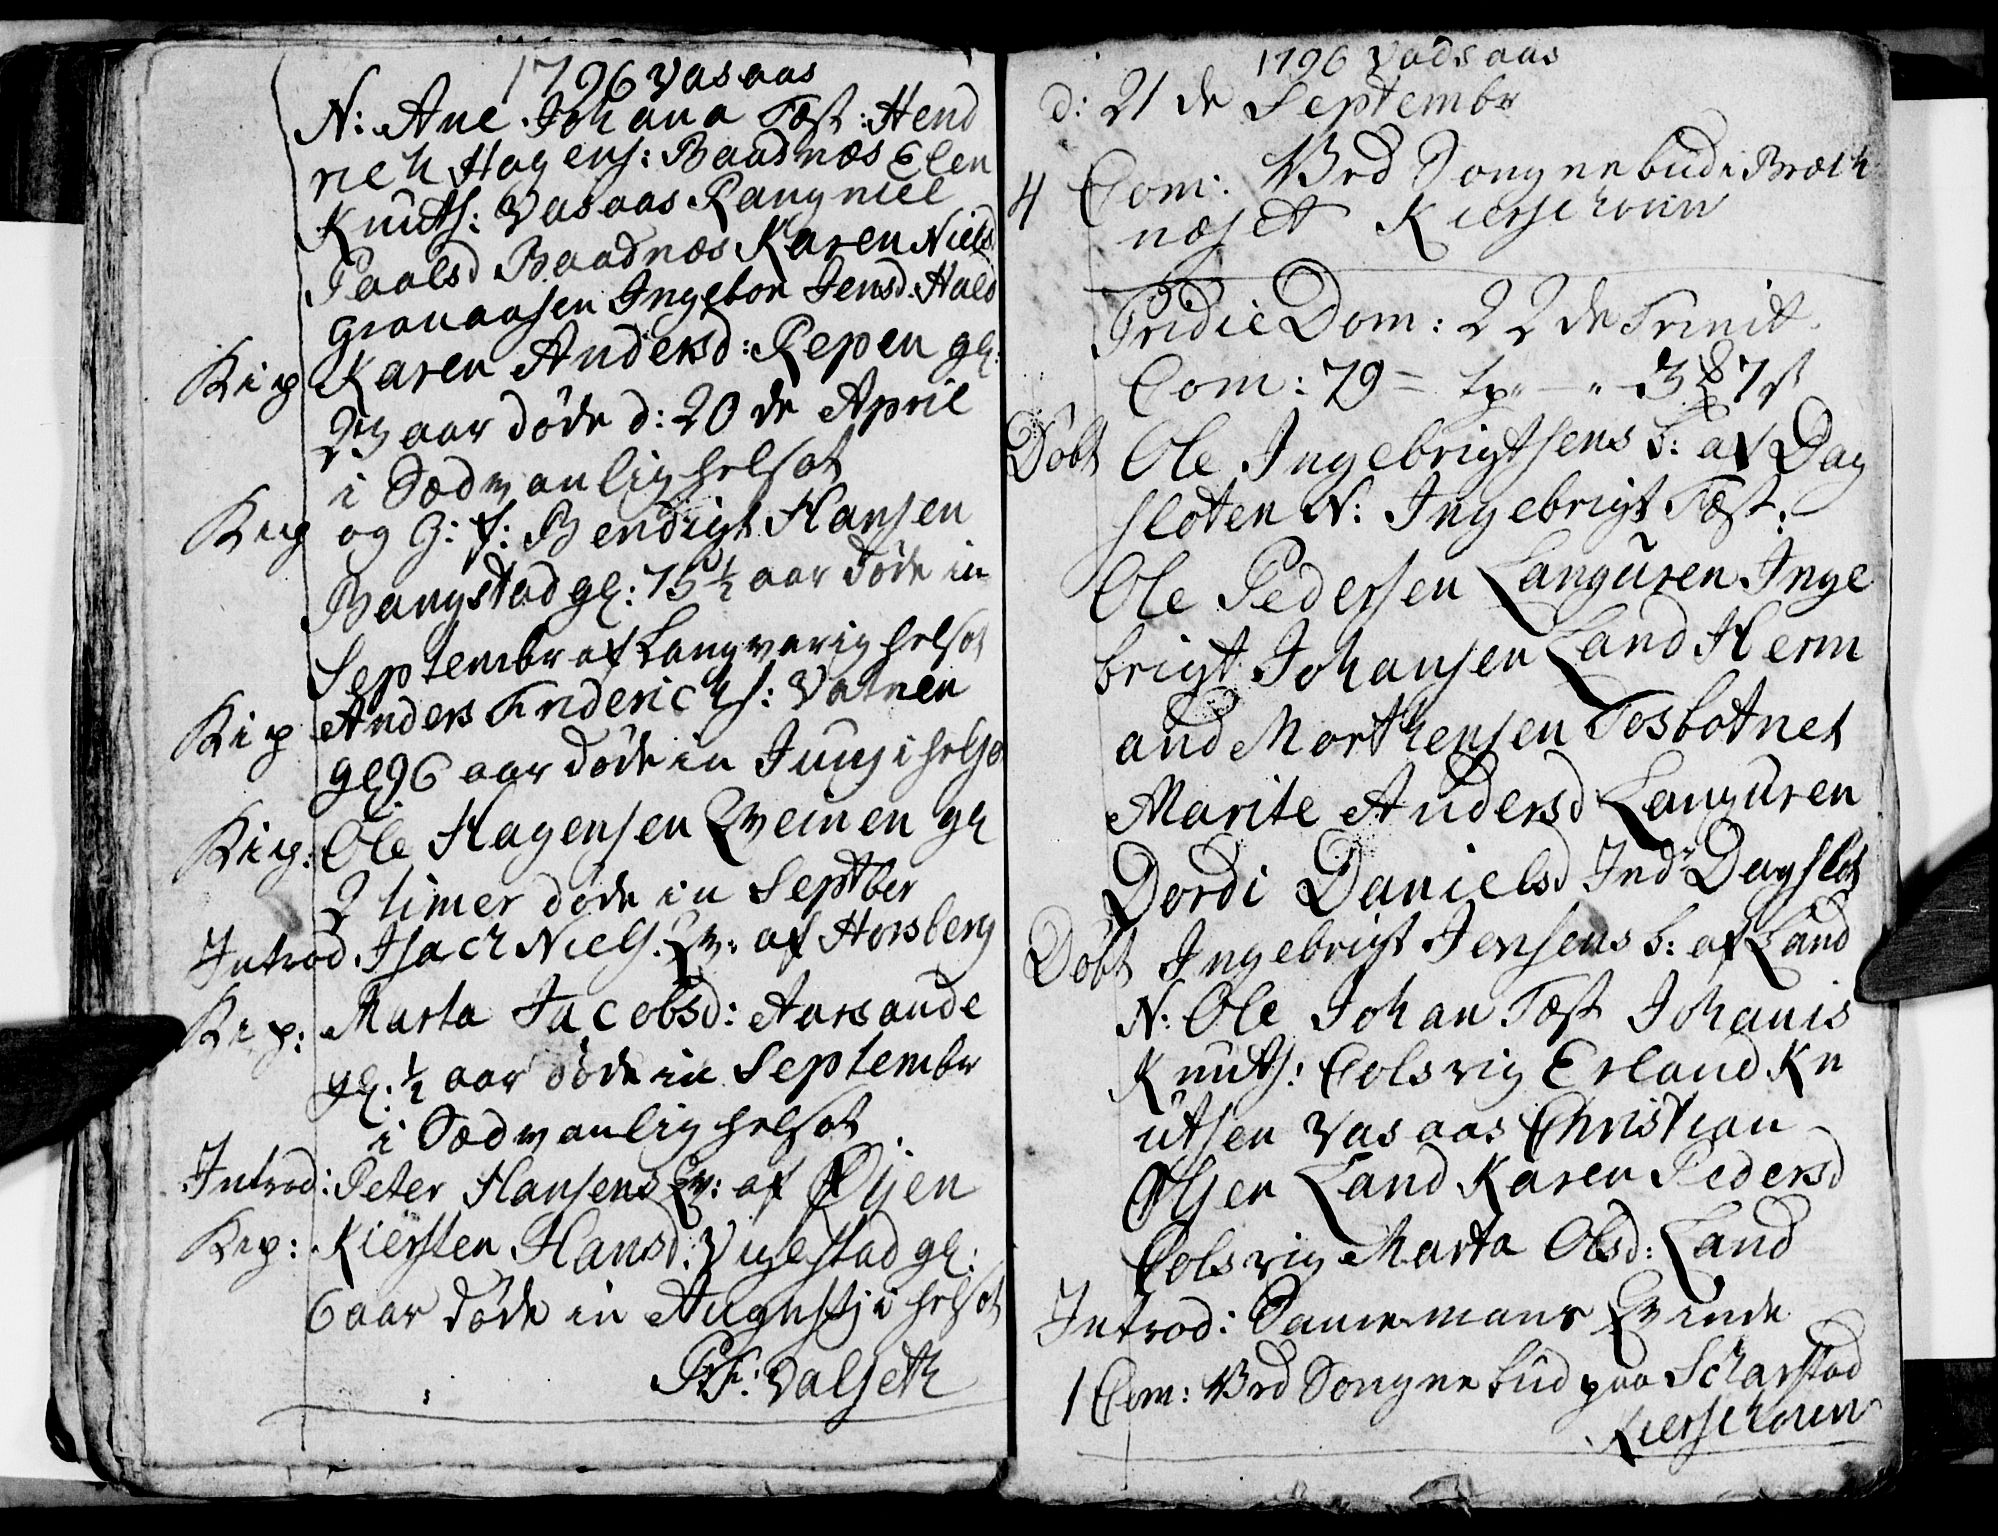 1796 Vasaas
N: Ane Johana Tæst: Hend
rich Hagens: Baadnæs Elen
Knuths: Vasaas Rangniel
Paalsd Baadnæs Karen Niels
Granaasen Ingebor Jensd. Hals
Kip Karen Andersd: Repen gl:
23 aar døde d: 20 de April
i Sædvanlig helsot
Kip og G: f: Bendigt Hansen
Bangstad gl: 75 1/2 aar døde in
Septembr af Langvarig helsot
Kip Anders Friderichs: Vatnen
gl 96 aar døde in Junj i helso
Kip: Ole Hagensen Qveinen gl
3 timer døde in Septber
Introd Isach Niels. Qv: af Horsberg
Kip: Marta Jacobsd: Aarsande
gl: 1/2 aar døde in Septembr
i Sædvanlig helsot
Introd: Peter Hansens Qv: af Øjen
Kip: Kiersten Hansd: Vigestad gl:
6 aar døde in Augustj i helsot
P:F: Valseth
1796 Vadsaas
d: 21 de Septembr
4 Com: Ved Songnebud i Bræch
næset Kierschouw
Pridie Dom: 22 de Trinit.
Com: 79 = 3 7 s
Døbt Ole Ingebrigtsens b: af Dag
sloten N: Ingebrigt Tæst:
Ole Pedersen Languren Inge
brigt Johansen Land Herm
and Morthensen Tosbotnet
Marite Andersd Languren
Dordi Danielsd Indr Dagslot
Døbt Ingebrigt Jensens b: af Land
N: Ole Johan Tæst Johanis
Knuths: Colsvig Erland Kn
utsen Vasaas Christian
Olsen Land Karen Pedersd
Colsvig Marta Olsd: Land
Introd: Samemans Qvinde
1 Com: Ved Songnebud paa Scharstad
Kierschouw